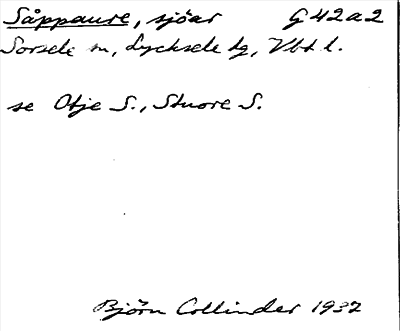 Såppaure, sjöar G 42 a 2
Sorsele sn, Lycksele lg, Vbt. l.
se Otje S., Stuore S.
Björn Collinder 1932